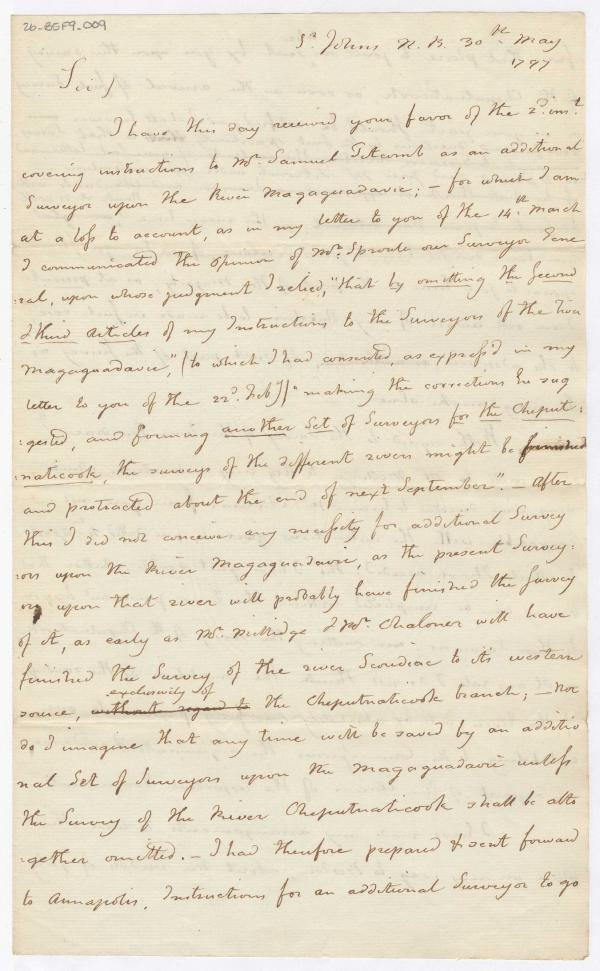 26-BEF9-009
St. Johns N. B. 30th May
1797
Sir/
I have this day received your favor of the 2d. inst.
covering instructions to Mr. Samuel Titcomb as an additional
Surveyor upon the River Magaguadavic; — for which I am
at a loss to account, as in my letter to you of the 14th. March
I communicated the opinion of Mr. Sproule our Surveyor Gene
:ral, upon whose judgment I relied, "that by omitting the Second
& third articles of my Instructions to the Surveyors of the River
Magaguadavic", (to which I had consented, as express'd in my
letter to you of the 22d. Feby) "making the corrections he sug
:gested, and forming another Set of Surveyors for the Cheput:
:naticook, the surveys of the different rivers might be finished
and protracted about the end of next September". — After
this I did not conceive any necessity for additional Survey
:ors upon the River Magaguadavic, as the present Survey:
ors upon that river will probably have finished the Survey
of it, as early as Mr. & Mr. Chaloner will have
finished the Survey of the river Scoudiac to its western
exclusively of
source, without regard to the Cheputnaticook branch; — nor
do I imagine that any time will be saved by an additio
nal Set of Surveyors upon the Magaguadavic unless
the Survey of the River Cheputnaticook shall be alto
:gether omitted. — I had therefore prepared & sent forward
to Annapolis, Instructions for an additional Surveyor to go